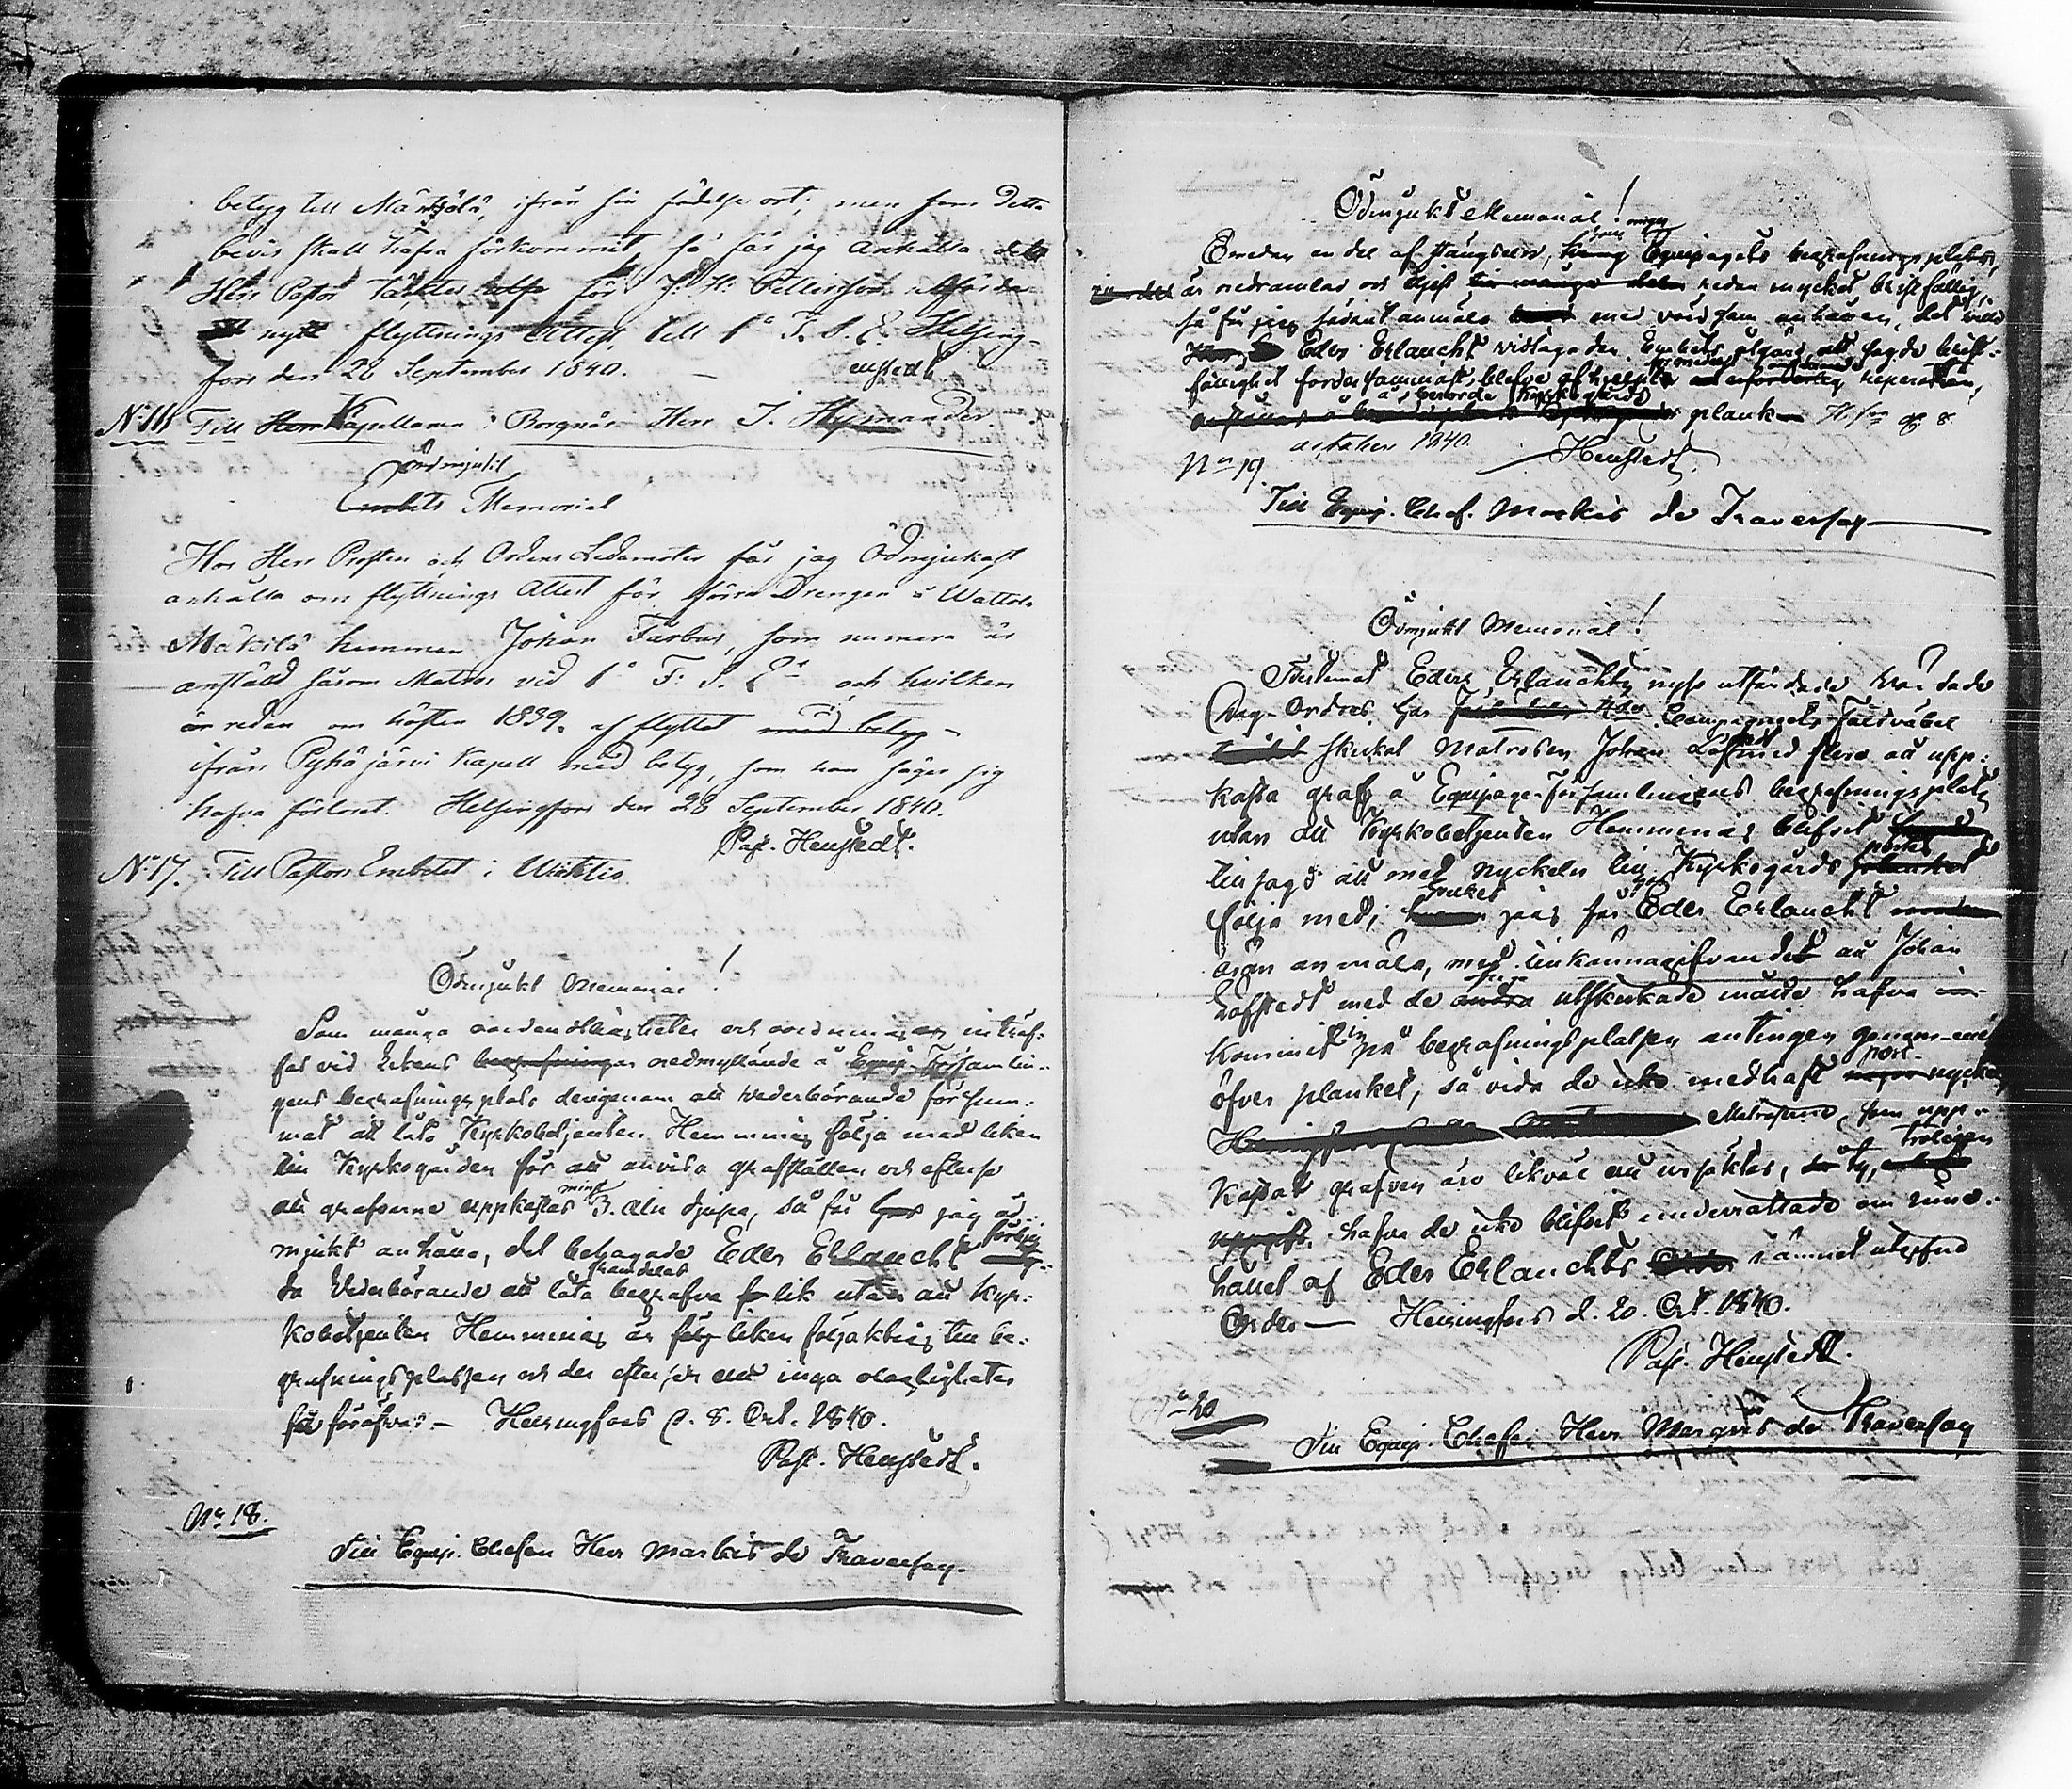 betyg till Mäntsälä, ifrån sin födelse ort; men som detta
bevis skall hafva förkommit så får jag anhålla det
Herr Pastor täcktes för J. H. Pettersson utfärda
nytt flyttnings Attest till 1a F. S. E. Helsing-
fors den 28 September 1840. Henstedt
No 16 Till Herr Kapellanen i Borgnäs Herr J.
Ödmjukt
Embets Memorial
Hos Herr Prosten och Ordens Ledamoten får jag Ödmjukast
anhålla om flyttnings Attest för förra Drengen å Wattola
Mäkilä hemman Johan Farbus, som numera är
anstäld såsom Matros vid 1a F. S. E. och hvilken
är redan om hösten 1839. afflyttat med betyg
ifrån Pyhäjärvi Kapell med betyg, som han säger sig
hafva förlorat. Helsingfors den 28 September 1840.
Past. Henstedt.
No 17. Till Pastors Embetet i Wichtis
Ödmjukt Memorial!
Som många oordentligheter och oordningar inträf-
fat vid likens begrafningar nedmyllande å Equip. Församlin-
gens begrafningsplats derigenom att wederbörande försum-
mat att låta Kyrkobetjenten Hemming följa med liken
till Kyrkogården för att anvisa grafställen och efterse
att grafvarne uppkastas minst 3. aln djupa, så får jag öd-
mjukt anhålla, det behagade Eder Erlaucht förbju-
da Vederbörande att framdeles låta begrafva lik utan att Kyr-
kobetjenten Hemming är liken följaktlig till be-
grafningsplatsen och der efterser att inga olagligheter
få föröfvas. — Helsingfors d. 8. Oct. 1840.
Past. Henstedt.
No 18.
Till Equip. Chefen Herr Markis de Traversay.
Ödmjukt Memorial!
Emedan en del af stängseln, kring Equipagets begrafningsplats,
är nedramlad och eljest till många delar redan mycket bristfällig,
så får jag sådant anmäla med vördsam anhållan, det ville
Eder Erlaucht vidtaga den Embets åtgärd, att sagde brist-
fällighet fordersammast blefve afhjelpt reperation,
å berörde Kyrkogårds plank H:fors d. 8.
october 1840.
Henstedt
No 19
Till Equip. Chef. Markis de Traversay
Ödmjukt Memorial!
Bestemdt Eders Erlauchts nyss utfärdade
Dag-Ordres har Compagniets Fältväbel
skickat Matrosen Johan Löfstedt med flera att upp-
kasta graf å Equipage-Församlingens begrafningsplats
utan att Kyrkobetjenten Hemming blifvit
tillsagd att med nyckeln till Kyrkogårds porten
följa med; hvilket jag får Eder Erlaucht
anmäla, med tillkännagifvandet att Johan
Löfstedt med de andra utskickade måste hafva in-
kommit på begrafningsplatsen antingen genom eller
öfver planket, så vida de icke medhaft port- nyckeln
Matroserne, som upp-
kastat grafven äro likväl att ursäktas, ty, troligen
hafva de icke blifvit underrättade om inne-
hållet af Eder Erlauchts i ämnet utgifne
Order — Helsingfors d. 20. Oct. 1840.
Past. Henstedt.
No 20
Till Equip. Chefen Herr Marquis de Traversay